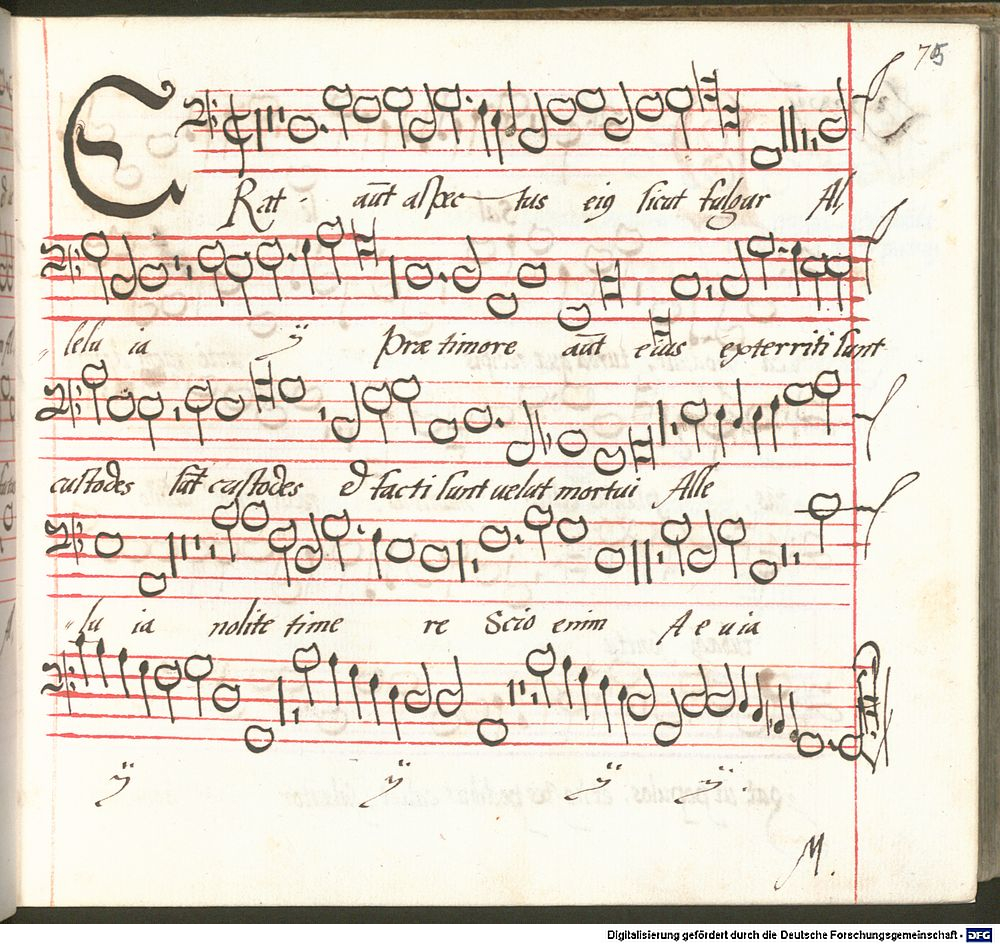 75
ERat aūt aspectus eiꝰ sicut fulgur Al,
lelu ia ij Præ timore aūt eius exterriti sunt
custodes sūt custodes et facti sunt uelut mortui Alle
lu ia nolite time re Scio enim A e u ia
ij ij ij ij
M.
Digitalisierung gefördert durch die Deutsche Forschungsgemeinschaft - DFG